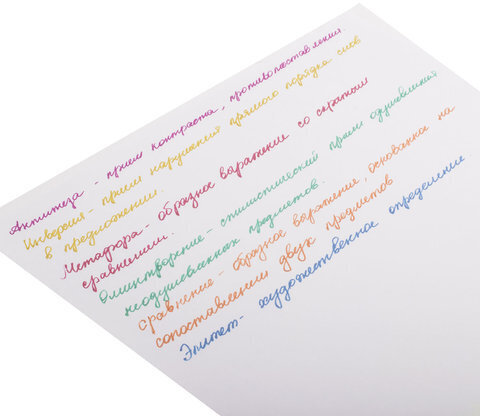 Антитеза - прием контраста, противопоставления.
Инверсия - прием нарушения прямого порядка слов
в предложении.
Метафора - образное выражение со скрытым
сравнением.
Олицетворение - стилистический прием одушевления
неодушевленных предметов.
Сравнение - образное выражение, основанное на
сопоставлении двух предметов
Эпитет - художественное определение